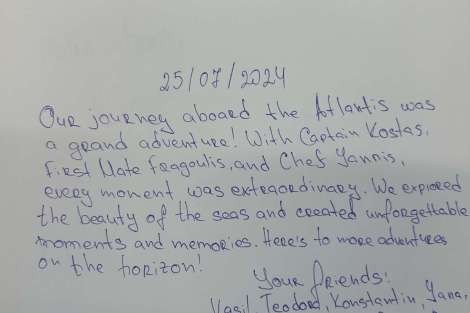 25/07/2024
Our journey aboard the Atlantis was
a grand adventure! With Captain Kostas,
First Mate Fragoulis, and Chef Yannis,
every moment was extraordinary. We explored
the beauty of the seas and created unforgettable
moments and memories. Here's to more adventures
on the horizon!
Your friends:
Vasil, Teodord, Konstantin, Yana,